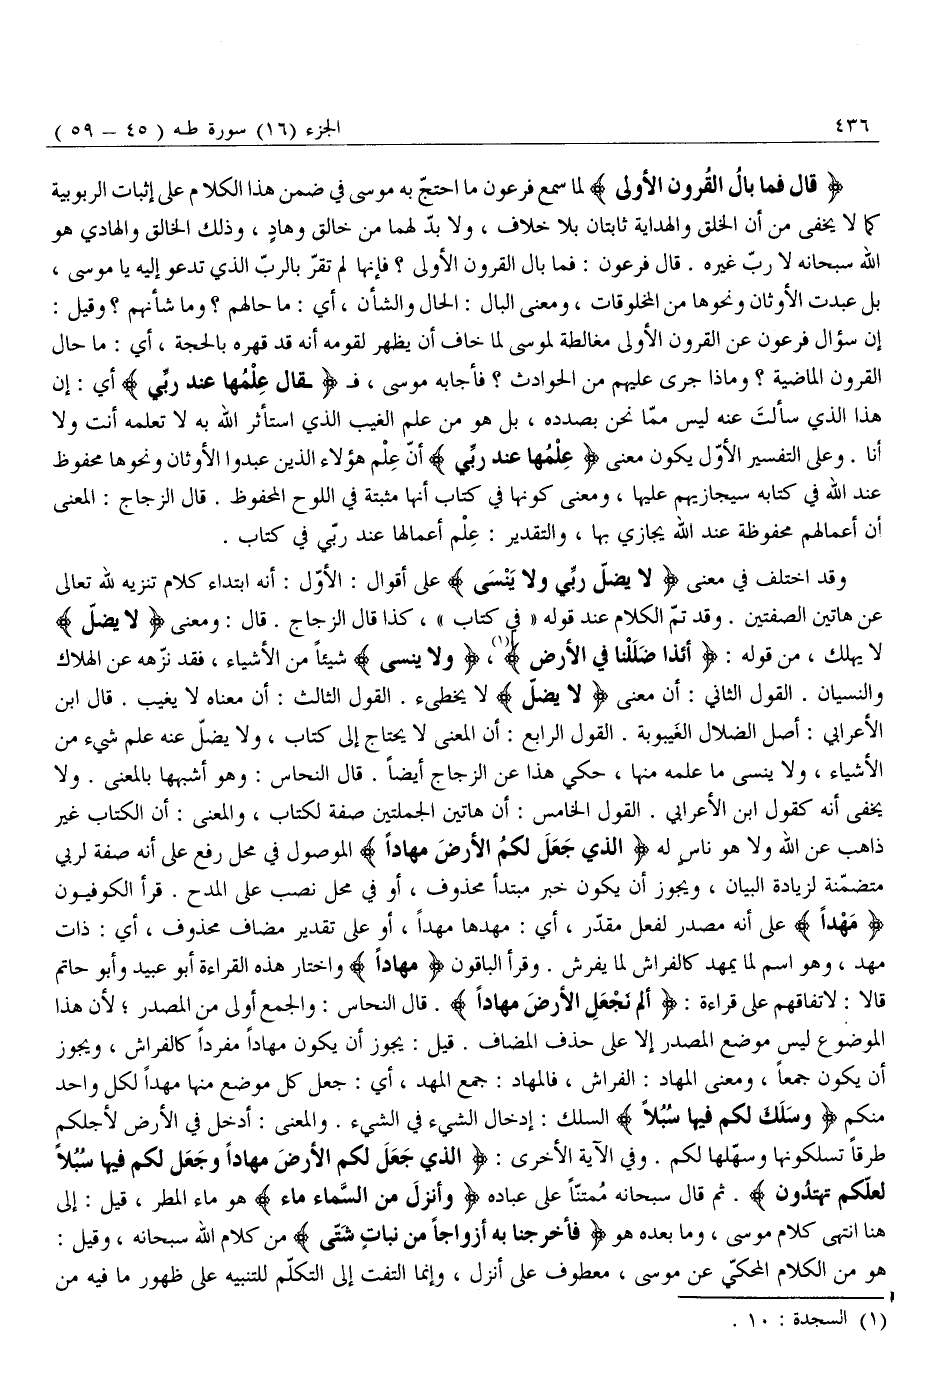 ٤٣٦ الجزء (١٦) سورة طه ( ٤٥ – ٥٩ )
﴿ قال فما بالُ القُرون الأولى ﴾ لما سمع فرعون ما احتجّ به موسى في ضمن هذا الكلام على إثبات الربوبية
كما لا يخفى من أن الخلق والهداية ثابتان بلا خلاف ، ولا بدّ لهما من خالق وهادٍ ، وذلك الخالق والهادي هو
الله سبحانه لا ربّ غيره . قال فرعون : فما بال القرون الأولى ؟ فإنها لم تقرّ بالربّ الذي تدعو إليه يا موسى ،
بل عبدت الأوثان ونحوها من المخلوقات ، ومعنى البال : الحال والشأن ، أي : ما حالهم ؟ وما شأنهم ؟ وقيل :
إن سؤال فرعون عن القرون الأولى مغالطة لموسى لما خاف أن يظهر لقومه أنه قد قهره بالحجة ، أي : ما حال
القرون الماضية ؟ وماذا جرى عليهم من الحوادث ؟ فأجابه موسى ، فـ ﴿ ـقال عِلْمُها عند ربِّي ﴾ أي : إن
هذا الذي سألتَ عنه ليس ممّا نحن بصدده ، بل هو من علم الغيب الذي استأثر الله به لا تعلمه أنت ولا
أنا . وعلى التفسير الأوّل يكون معنى ﴿ عِلْمُها عند ربِّي ﴾ أنّ عِلْم هؤلاء الذين عبدوا الأوثان ونحوها محفوظ
عند الله في كتابه سيجازيهم عليها ، ومعنى كونها في كتاب أنها مثبتة في اللوح المحفوظ . قال الزجاج : المعنى
أن أعمالهم محفوظة عند الله يجازي بها ، والتقدير : عِلْم أعمالها عند ربّي في كتاب .
وقد اختلف في معنى ﴿ لا يضلّ ربِّي ولا يَنْسَى ﴾ على أقوال : الأوّل : أنه ابتداء كلام تنزيه لله تعالى
عن هاتين الصفتين . وقد تمّ الكلام عند قوله « في كتاب » ، كذا قال الزجاج . قال : ومعنى ﴿ لا يضلّ ﴾
لا يهلك ، من قوله : ﴿ أئذا ضَلَلْنا في الأرض ﴾(١)، ﴿ ولا ينسى ﴾ شيئاً من الأشياء ، فقد نزّهه عن الهلاك
والنسيان . القول الثاني : أن معنى ﴿ لا يضلّ ﴾ لا يخطىء . القول الثالث : أن معناه لا يغيب . قال ابن
الأعرابي : أصل الضلال الغَيبوبة . القول الرابع : أن المعنى لا يحتاج إلى كتاب ، ولا يضلّ عنه علم شيء من
الأشياء ، ولا ينسى ما علمه منها ، حكي هذا عن الزجاج أيضاً . قال النحاس : وهو أشبهها بالمعنى . ولا
يخفى أنه كقول ابن الأعرابي . القول الخامس : أن هاتين الجملتين صفة لكتاب ، والمعنى : أن الكتاب غير
ذاهب عن الله ولا هو ناسٍ له ﴿ الذي جَعَلَ لكمُ الأرضَ مهاداً ﴾ الموصول في محل رفع على أنه صفة لربي
متضمّنة لزيادة البيان ، ويجوز أن يكون خبر مبتدأ محذوف ، أو في محل نصب على المدح . قرأ الكوفيون
﴿ مَهْداً ﴾ على أنه مصدر لفعل مقدّر ، أي : مهدها مهداً ، أو على تقدير مضاف محذوف ، أي : ذات
مهد ، وهو اسم لما يمهد كالفراش لما يفرش . وقرأ الباقون ﴿ مهاداً ﴾ واختار هذه القراءة أبو عبيد وأبو حاتم
قالا : لاتفاقهم على قراءة : ﴿ ألم نَجْعَلِ الأرضَ مهاداً ﴾ . قال النحاس : والجمع أولى من المصدر ؛ لأن هذا
الموضوع ليس موضع المصدر إلا على حذف المضاف . قيل : يجوز أن يكون مهاداً مفرداً كالفراش ، ويجوز
أن يكون جمعاً ، ومعنى المهاد : الفراش ، فالمهاد : جمع المهد ، أي : جعل كل موضع منها مهداً لكل واحد
منكم ﴿ وسَلَكَ لكم فيها سُبُلاً ﴾ السلك : إدخال الشيء في الشيء . والمعنى : أدخل في الأرض لأجلكم
طرقاً تسلكونها وسهّلها لكم . وفي الآية الأخرى : ﴿ الذي جَعَلَ لكم الأرضَ مهاداً وجَعَل لكم فيها سُبُلاً
لعلّكم تهتدُون ﴾ . ثم قال سبحانه مُمتنّاً على عباده ﴿ وأنزلَ من السَّماء ماء ﴾ هو ماء المطر ، قيل : إلى
هنا انتهى كلام موسى ، وما بعده هو ﴿ فأخرجنا به أزواجاً من نباتٍ شَتّى ﴾ من كلام الله سبحانه ، وقيل :
هو من الكلام المحكيّ عن موسى ، معطوف على أنزل ، وإنما التفت إلى التكلّم للتنبيه على ظهور ما فيه من
(١) السجدة : ١٠ .